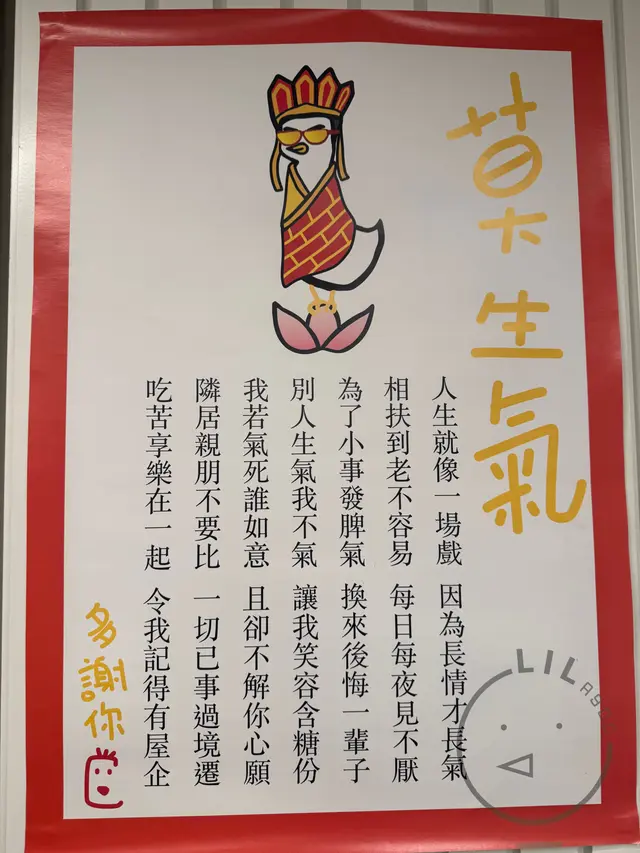 莫生氣
人生就像一場戲 因為長情才長氣
相扶到老不容易 每日每夜見不厭
為了小事發脾氣 換來後悔一輩子
別人生氣我不氣 讓我笑容含糖份
我若氣死誰如意 且卻不解你心願
隣居親朋不要比 一切已事過境遷
吃苦享樂在一起 令我記得有屋企
多謝你
LILAgs